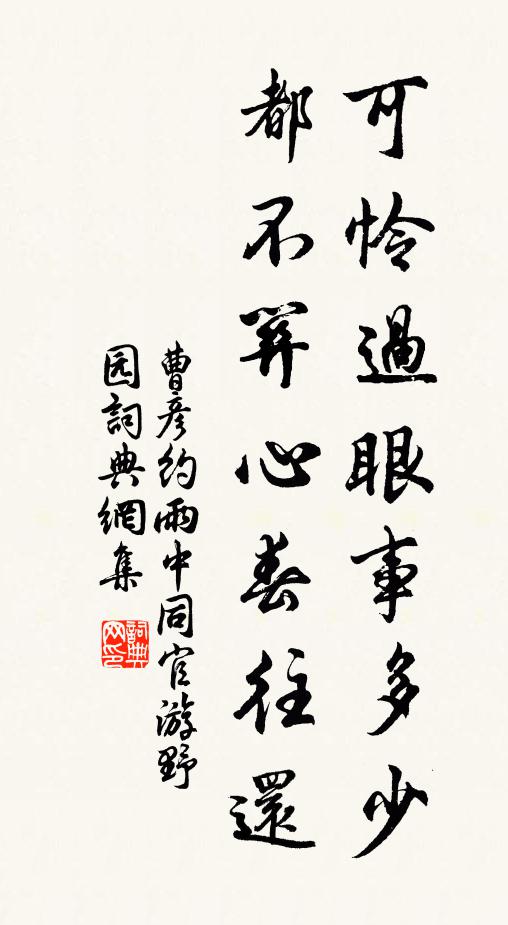 可怜過眼事多少
都不關心春往還
曹彦約雨中同官游野
园詞典網集
詞典
网印